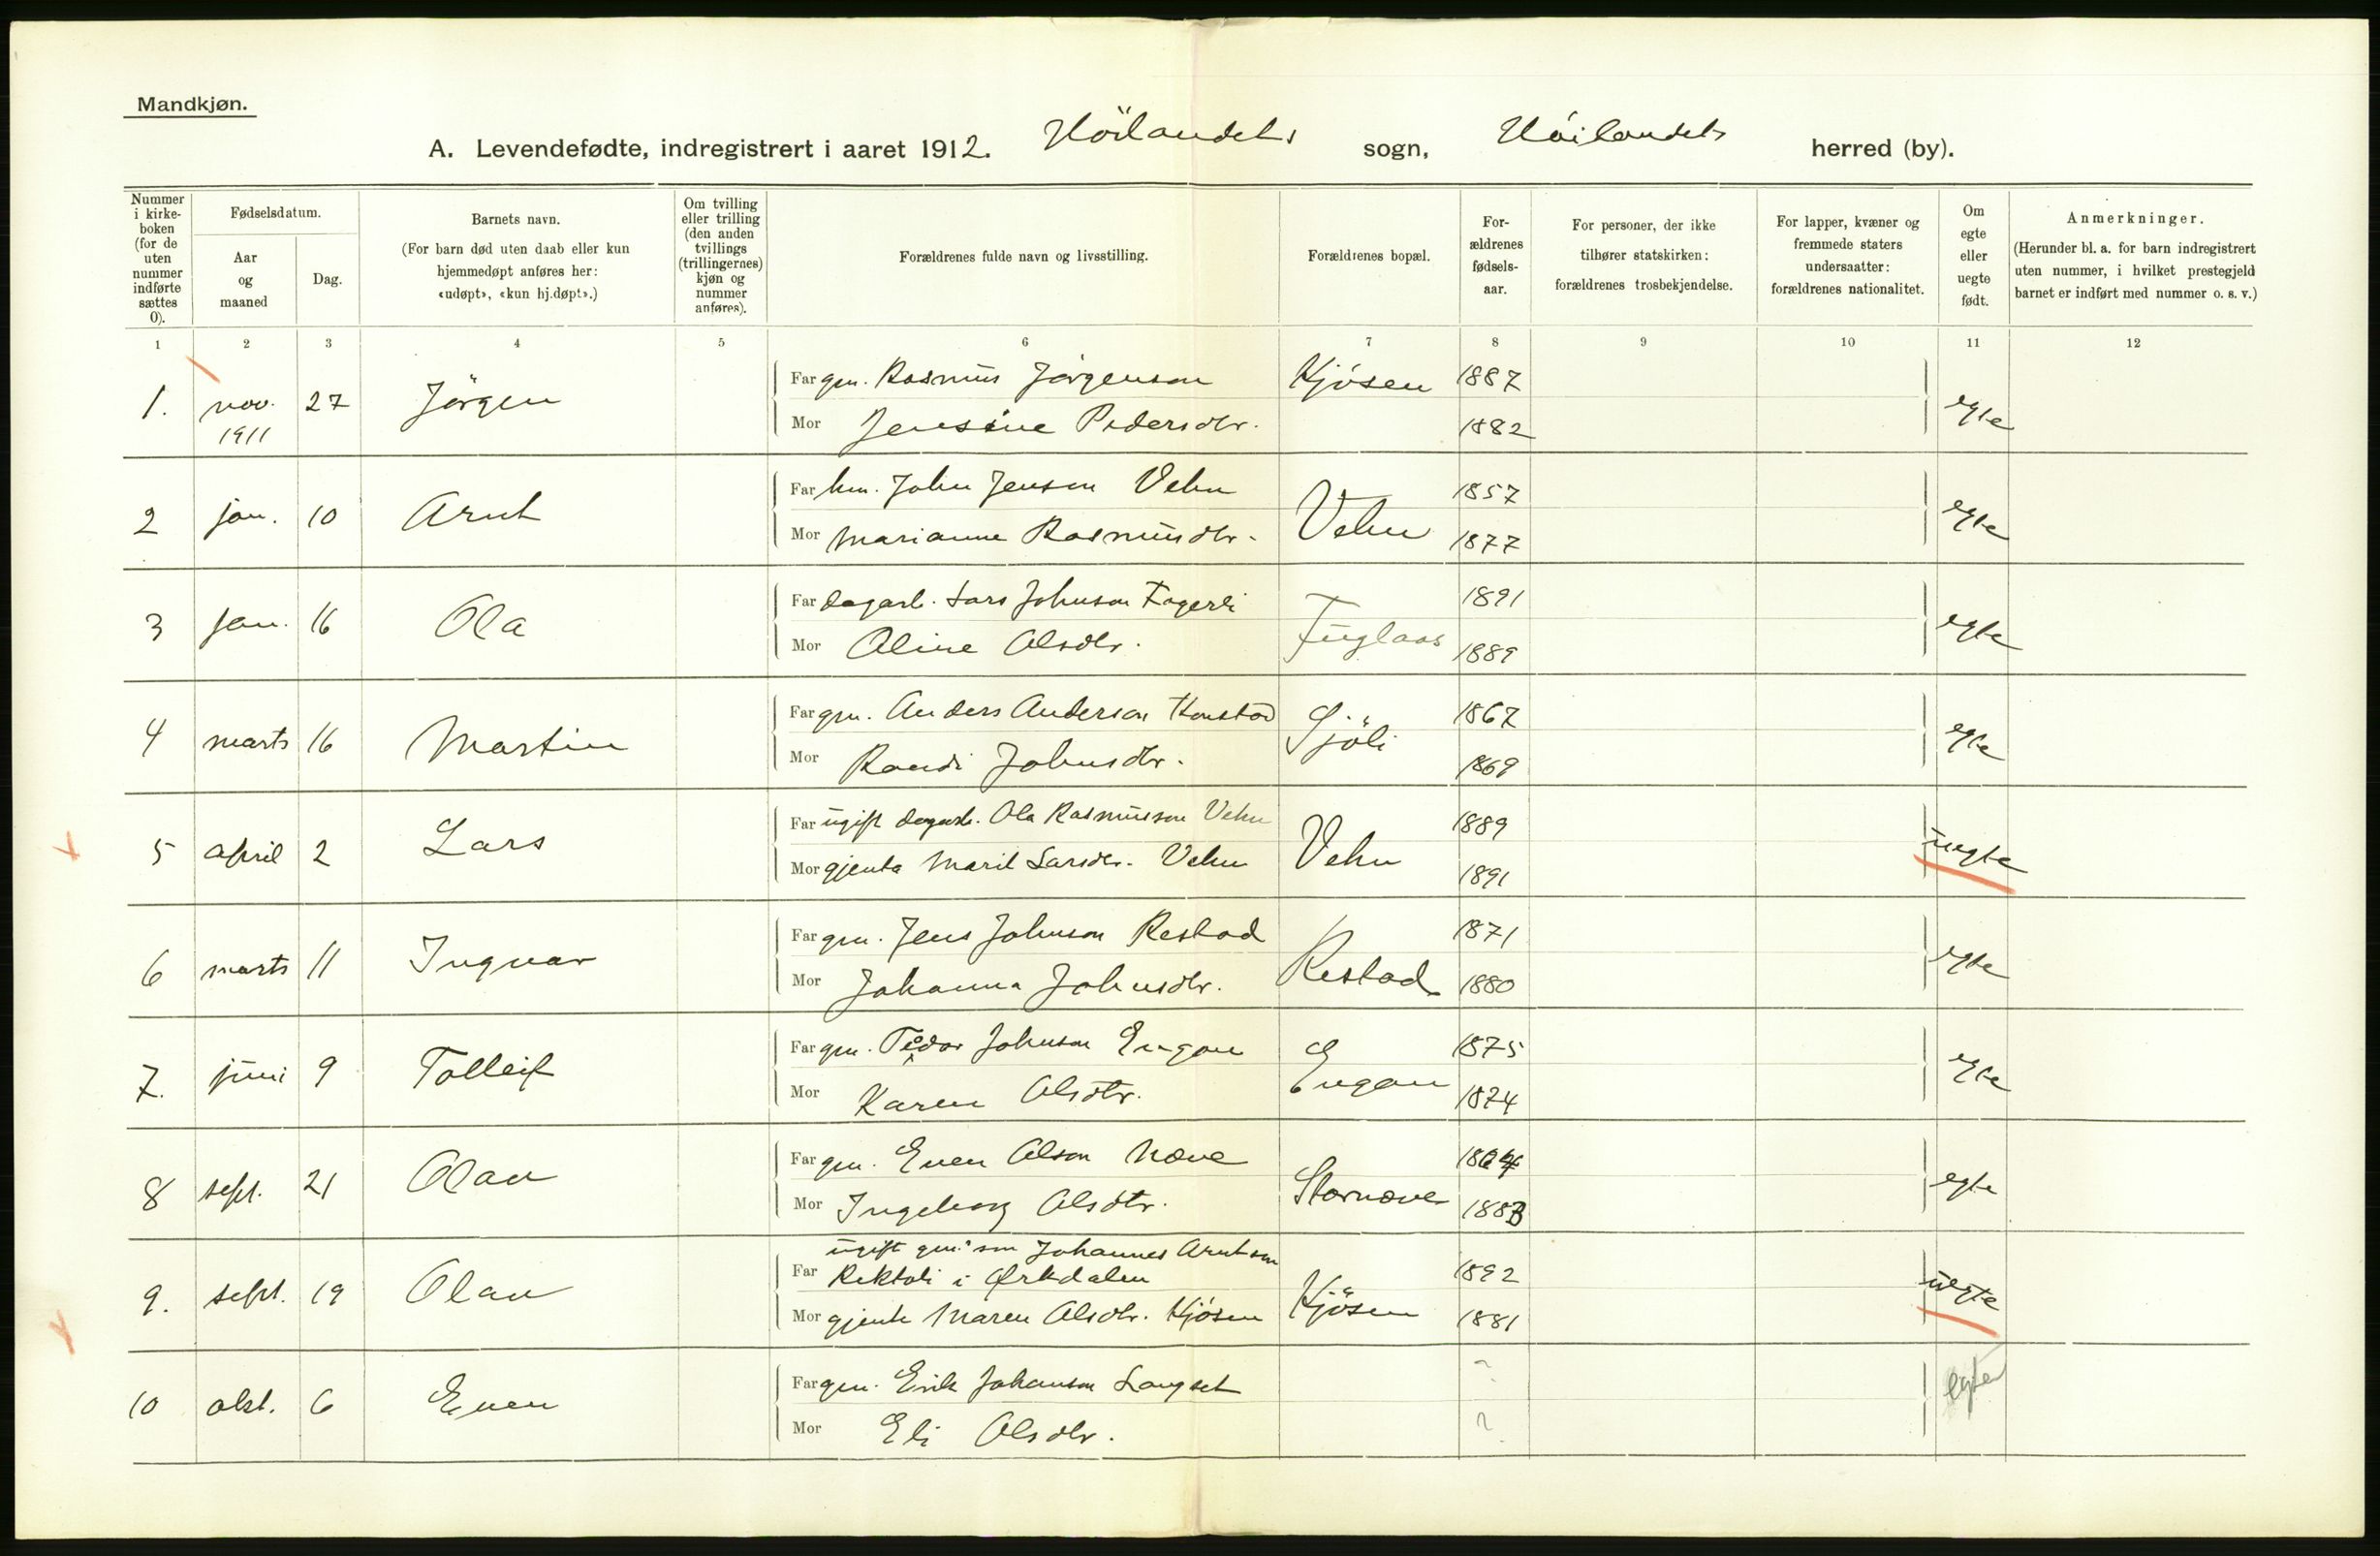 Mandkjøn.
A. Levendefødte, indregistrert i aaret 1912. Höilandets sogn, Höilandets herred (by).
Nummer i kirke-boken (for de uten nummer indførte sættes 0).
Fødselsdatum.
Aar og maaned
Dag.
Barnets navn.
(For barn død uten daab eller kun hjemmedøpt anføres her: «udøpt», «kun hj.døpt».)
Om tvilling eller trilling (den anden tvillings (trillingernes) kjøn og nummer anføres).
Forældrenes fulde navn og livsstilling.
Forældrenes bopæl.
For-ældrenes fødsels-aar.
For personer, der ikke tilhører statskirken: forældrenes trosbekjendelse.
For lapper, kvæner og fremmede staters undersaatter: forældrenes nationalitet.
Om egte eller uegte født.
Anmerkninger.
(Herunder bl. a. for barn indregistrert uten nummer, i hvilket prestegjeld barnet er indført med nummer o. s. v.)
1 2 3 4 5 6 7 8 9 10 11 12
1. nov. 1911 27 Jörgen Far gm. Rasmus Jörgenson Kjösen 1887 egte
Mor Jensine Pedersdtr. 1882
2 jan. 10 Arnt Far hm. John Jenson Vehn Vehn 1857 egte
Mor Marianne Rasmusdtr. 1877
3 jan. 16 Ola Far dagarb. Lars Johnson Fagerli Fuglaas 1891 egte
Mor Oline Olsdtr. 1889
4 marts 16 Martin Far gm. Anders Anderson Sjöli 1867 egte
Mor Randi Johnsdtr. 1869
5 april 2 Lars Far ugift dagarb. Ola Rasmusson Vehn Vehn 1889 uegte
Mor gjenta Marit Larsdtr. Vehn 1891
6 marts 11 Ingvar Far gm. Jens Johnson Restad Restad 1871 egte
Mor Johanna Johnsdtr. 1880
7. juni 9 Tolleif Far gm. Johnson Engan Engan 1875 egte
Mor Karen Olsdtr. 1874
8 sept. 21 Olav Far gm. Even Olson Næve Stornæve 1864 egte
Mor Ingeborg Olsdtr. 1883
9. sept. 19 Olav ugift gm.'s sön Johannes Arntson
Far Rektoli i Ørkdalen Kjösen 1892 uegte
Mor gjenta Maren Olsdtr. Kjösen 1881
10 okt. 6 Even Far gm. Erik Johanson Langset ? egte
Mor Eli Olsdtr. ?